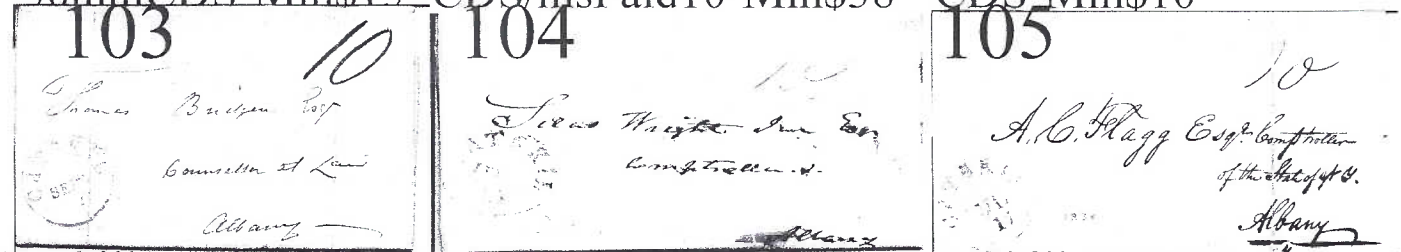 103
10
Thomas Bridgen Esqr
Counsellor at Law
Albany
104
10
Silas Wright Junr Esqr
Comptroller
Albany
105
10
A. C. Flagg Esqr. Comptroller
of the State of N Y.
Albany